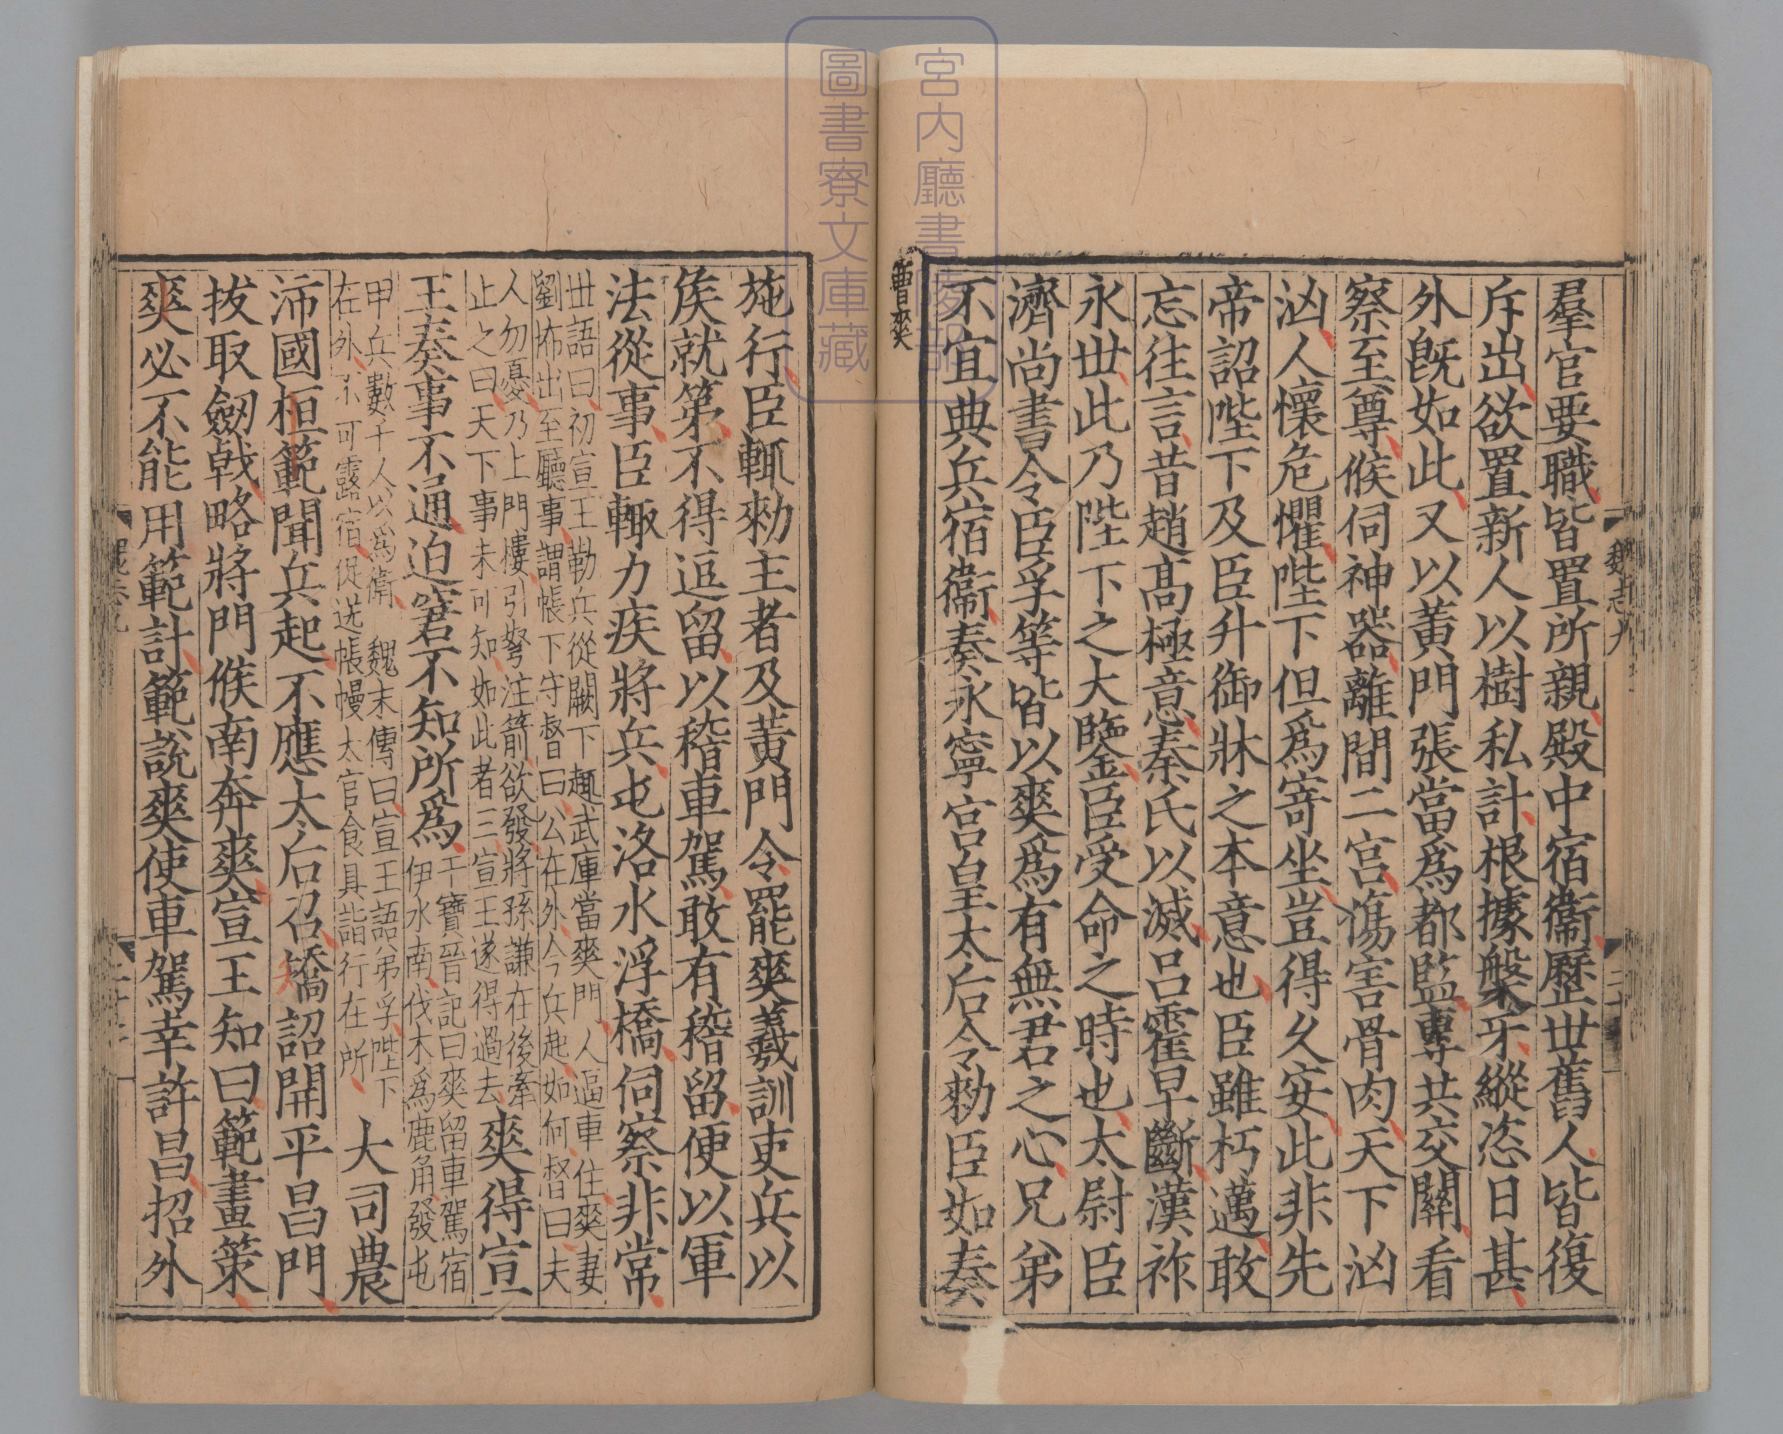 宮内廳書陵部
圖書寮文庫藏
魏志九
羣官要職皆置所親殿中宿衞歷世舊人皆復
斥出欲置新人以樹私計根據槃牙縱恣日甚
外旣如此又以黃門張當爲都監專共交關看
察至尊候伺神器離間二宮傷害骨肉天下汹
汹人懷危懼陛下但爲寄坐豈得久安此非先
帝詔陛下及臣升御牀之本意也臣雖朽邁敢
忘往言昔趙高極意秦氏以滅呂霍早斷漢祚
永世此乃陛下之大鑒臣受命之時也太尉臣
濟尚書令臣孚等皆以爽爲有無君之心兄弟
不宜典兵宿衞奏永寧宮皇太后令勑臣如奏
曹爽
施行臣輒勑主者及黃門令罷爽羲訓吏兵以
侯就第不得逗留以稽車駕敢有稽留便以軍
法從事臣輒力疾將兵屯洛水浮橋伺察非常
世語曰初宣王勒兵從闕下趨武庫當爽門人逼車住爽妻
劉怖出至廳事謂帳下守督曰公在外今兵起如何督曰夫
人勿憂乃上門樓引弩注箭欲發將孫謙在後牽
止之曰天下事未可知如此者三宣王遂得過去
爽得宣
王奏事不通迫窘不知所爲
干寶晉記曰爽留車駕宿
伊水南伐木爲鹿角發屯
甲兵數千人以爲衞 魏末傳曰宣王語弟孚陛下
在外不可露宿促送帳幔太官食具詣行在所
大司農
沛國桓範聞兵起不應太后召矯詔開平昌門
拔取劒戟略將門候南奔爽宣王知曰範畫策
爽必不能用範計範說爽使車駕幸許昌招外